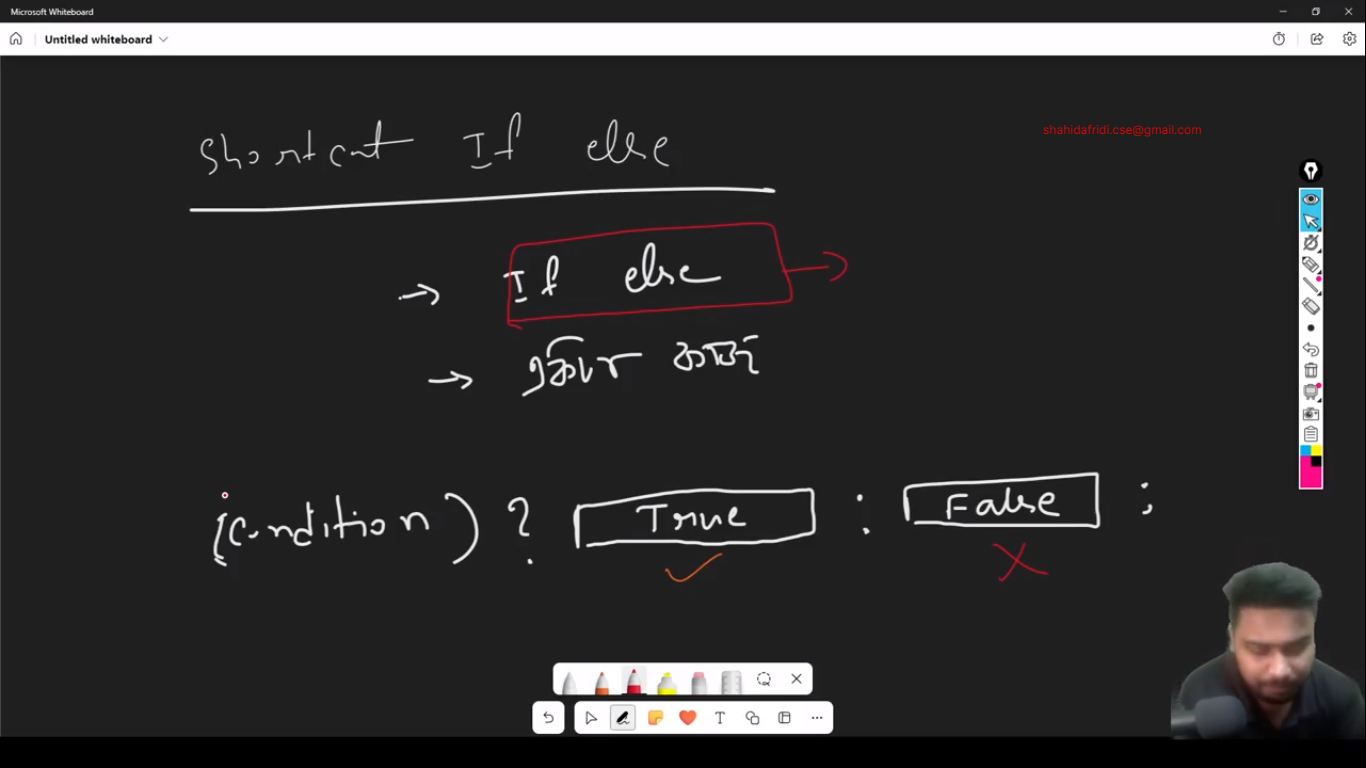 Microsoft Whiteboard
Untitled whiteboard
shahidafridi.cse@gmail.com
Shortcut If else
→ If else →
→
(Condition) ? True : False ;
✓ X
T